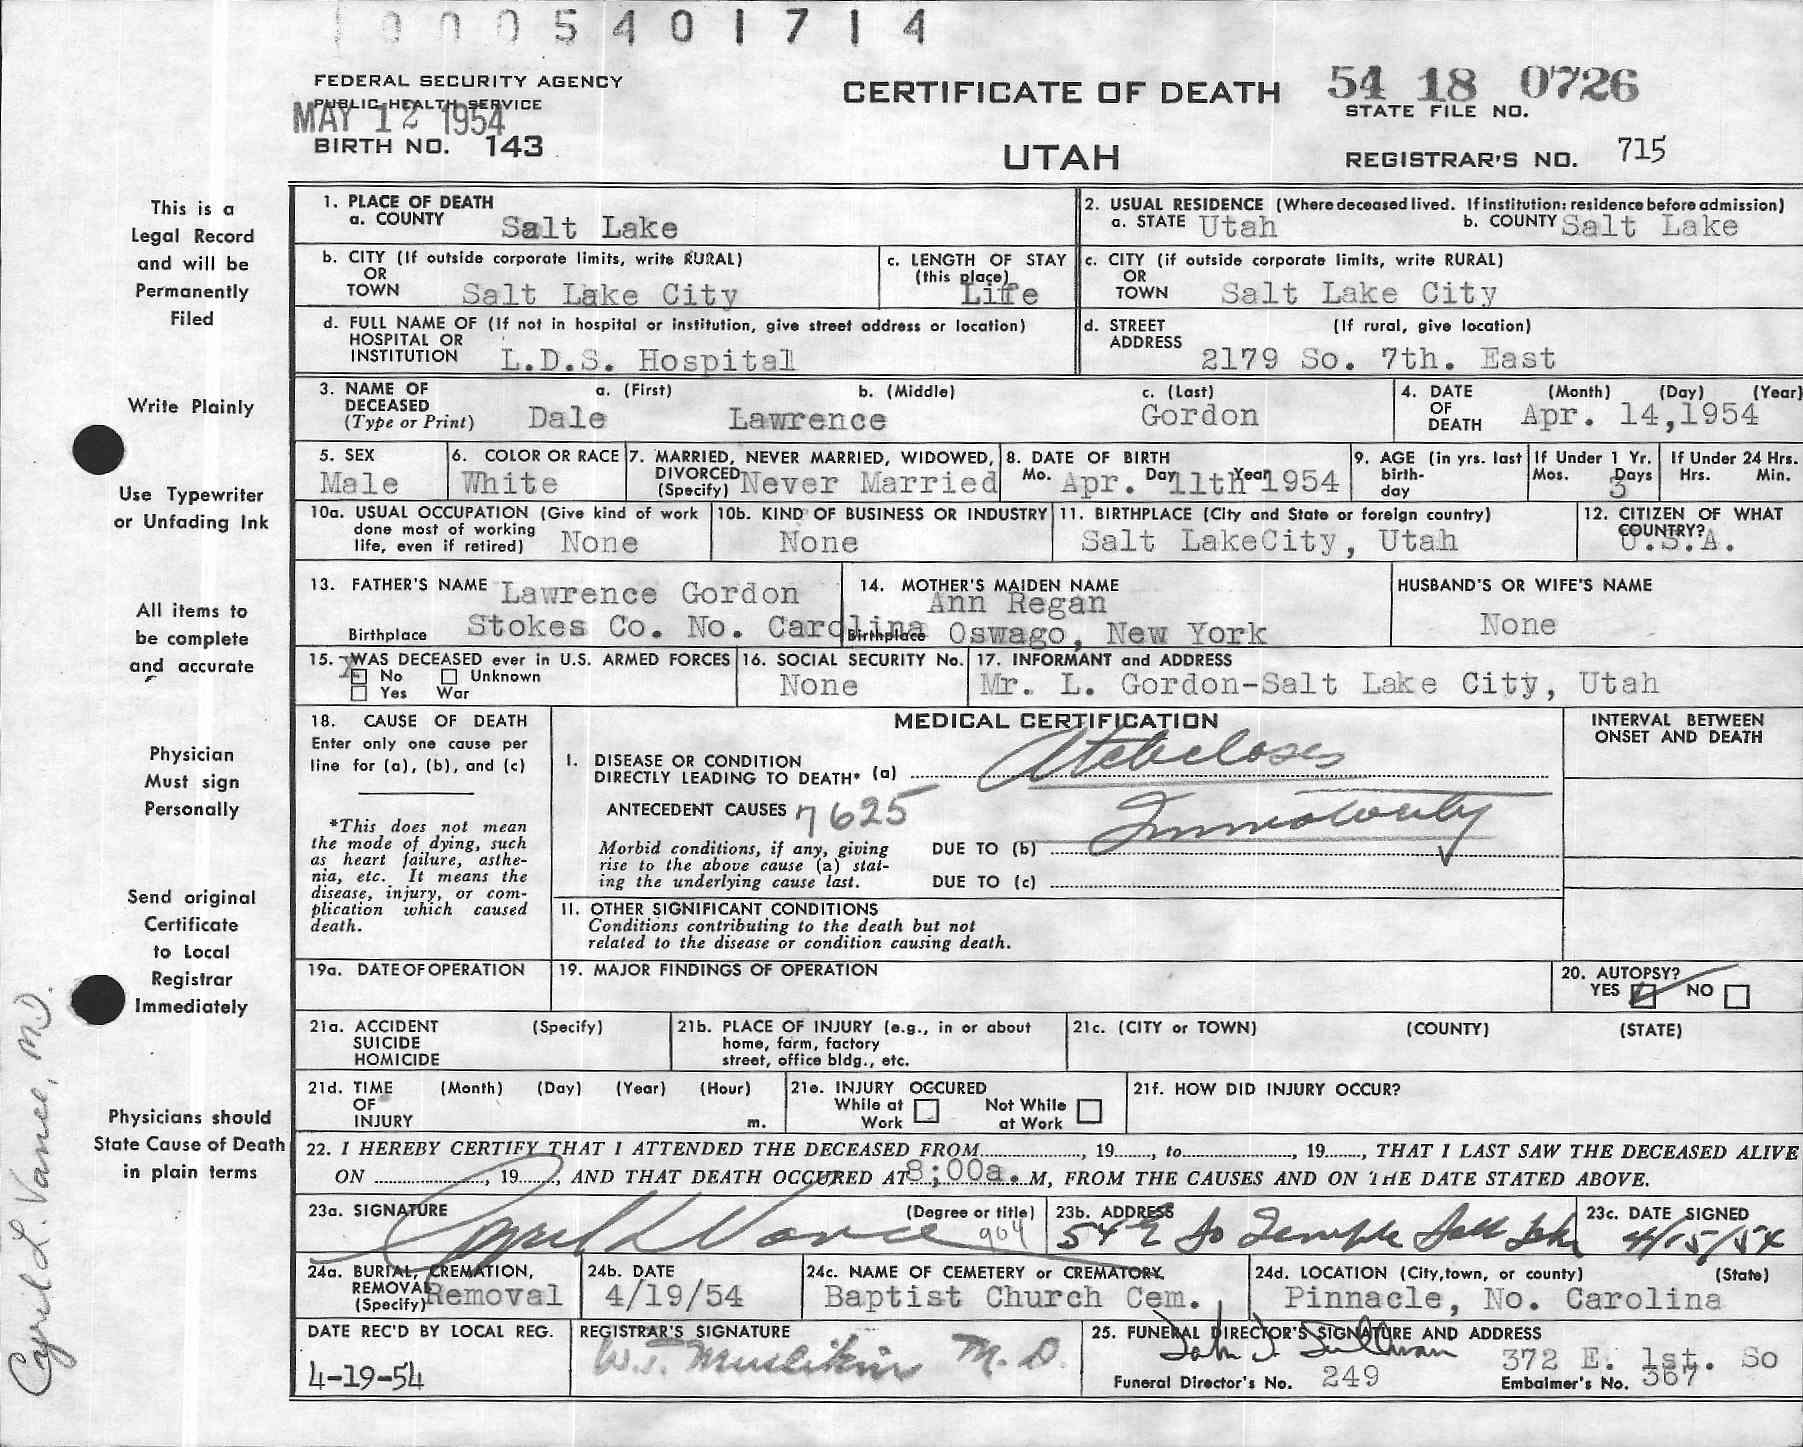 10005401714
FEDERAL SECURITY AGENCY
PUBLIC HEALTH SERVICE
MAY 12 1954
BIRTH NO. 143
CERTIFICATE OF DEATH
UTAH
54 18 0726
STATE FILE NO.
REGISTRAR'S NO. 715
This is a
Legal Record
and will be
Permanently
Filed
Write Plainly
Use Typewriter
or Unfading Ink
All items to
be complete
and accurate
Physician
Must sign
Personally
Send original
Certificate
to Local
Registrar
Immediately
Physicians should
State Cause of Death
in plain terms
Cyril L. Vance, M.D.
1. PLACE OF DEATH
a. COUNTY Salt Lake
2. USUAL RESIDENCE (Where deceased lived. If institution: residence before admission)
a. STATE Utah b. COUNTY Salt Lake
b. CITY (If outside corporate limits, write RURAL)
OR
TOWN Salt Lake City
c. LENGTH OF STAY
(this place)
Life
c. CITY (if outside corporate limits, write RURAL)
OR
TOWN Salt Lake City
d. FULL NAME OF (If not in hospital or institution, give street address or location)
HOSPITAL OR
INSTITUTION L.D.S. Hospital
d. STREET (If rural, give location)
ADDRESS
2179 So. 7th. East
3. NAME OF a. (First) b. (Middle) c. (Last)
DECEASED
(Type or Print) Dale Lawrence Gordon
4. DATE (Month) (Day) (Year)
OF
DEATH Apr. 14,1954
5. SEX
Male
6. COLOR OR RACE
White
7. MARRIED, NEVER MARRIED, WIDOWED,
DIVORCED
(Specify) Never Married
8. DATE OF BIRTH
Mo. Apr. Day 11th Year 1954
9. AGE (in yrs. last
birth-
day
If Under 1 Yr.
Mos. Days
3
If Under 24 Hrs.
Hrs. Min.
10a. USUAL OCCUPATION (Give kind of work
done most of working
life, even if retired) None
10b. KIND OF BUSINESS OR INDUSTRY
None
11. BIRTHPLACE (City and State or foreign country)
Salt LakeCity, Utah
12. CITIZEN OF WHAT
COUNTRY?
U.S.A.
13. FATHER'S NAME Lawrence Gordon
Birthplace Stokes Co. No. Carolina
14. MOTHER'S MAIDEN NAME
Ann Regan
Birthplace Oswago, New York
HUSBAND'S OR WIFE'S NAME
None
15. WAS DECEASED ever in U.S. ARMED FORCES
X No Unknown
Yes War
16. SOCIAL SECURITY No.
None
17. INFORMANT and ADDRESS
Mr. L. Gordon-Salt Lake City, Utah
18. CAUSE OF DEATH
Enter only one cause per
line for (a), (b), and (c)
*This does not mean
the mode of dying, such
as heart failure, asthe-
nia, etc. It means the
disease, injury, or com-
plication which caused
death.
MEDICAL CERTIFICATION
I. DISEASE OR CONDITION
DIRECTLY LEADING TO DEATH* (a)
ANTECEDENT CAUSES 7625
Morbid conditions, if any, giving
rise to the above cause (a) stat-
ing the underlying cause last.
DUE TO (b) Immaturity
DUE TO (c)
11. OTHER SIGNIFICANT CONDITIONS
Conditions contributing to the death but not
related to the disease or condition causing death.
INTERVAL BETWEEN
ONSET AND DEATH
19a. DATE OF OPERATION
19. MAJOR FINDINGS OF OPERATION
20. AUTOPSY?
YES NO
21a. ACCIDENT (Specify)
SUICIDE
HOMICIDE
21b. PLACE OF INJURY (e.g., in or about
home, farm, factory
street, office bldg., etc.
21c. (CITY or TOWN) (COUNTY) (STATE)
21d. TIME (Month) (Day) (Year) (Hour)
OF
INJURY m.
21e. INJURY OCCURED
While at Work
Not While at Work
21f. HOW DID INJURY OCCUR?
22. I HEREBY CERTIFY THAT I ATTENDED THE DECEASED FROM........, 19...., to........, 19...., THAT I LAST SAW THE DECEASED ALIVE
ON ........, 19...., AND THAT DEATH OCCURED AT 8;00a.M, FROM THE CAUSES AND ON THE DATE STATED ABOVE.
23a. SIGNATURE (Degree or title)
Cyril L Vance 904
23b. ADDRESS
54 E So Temple Salt Lake
23c. DATE SIGNED
4/15/54
24a. BURIAL, CREMATION,
REMOVAL
(Specify) Removal
24b. DATE
4/19/54
24c. NAME OF CEMETERY or CREMATORY
Baptist Church Cem.
24d. LOCATION (City,town, or county) (State)
Pinnacle, No. Carolina
DATE REC'D BY LOCAL REG.
4-19-54
REGISTRAR'S SIGNATURE
M. D.
25. FUNERAL DIRECTOR'S SIGNATURE AND ADDRESS
John J. Sullivan 372 E. 1st. So
Funeral Director's No. 249 Embalmer's No. 367